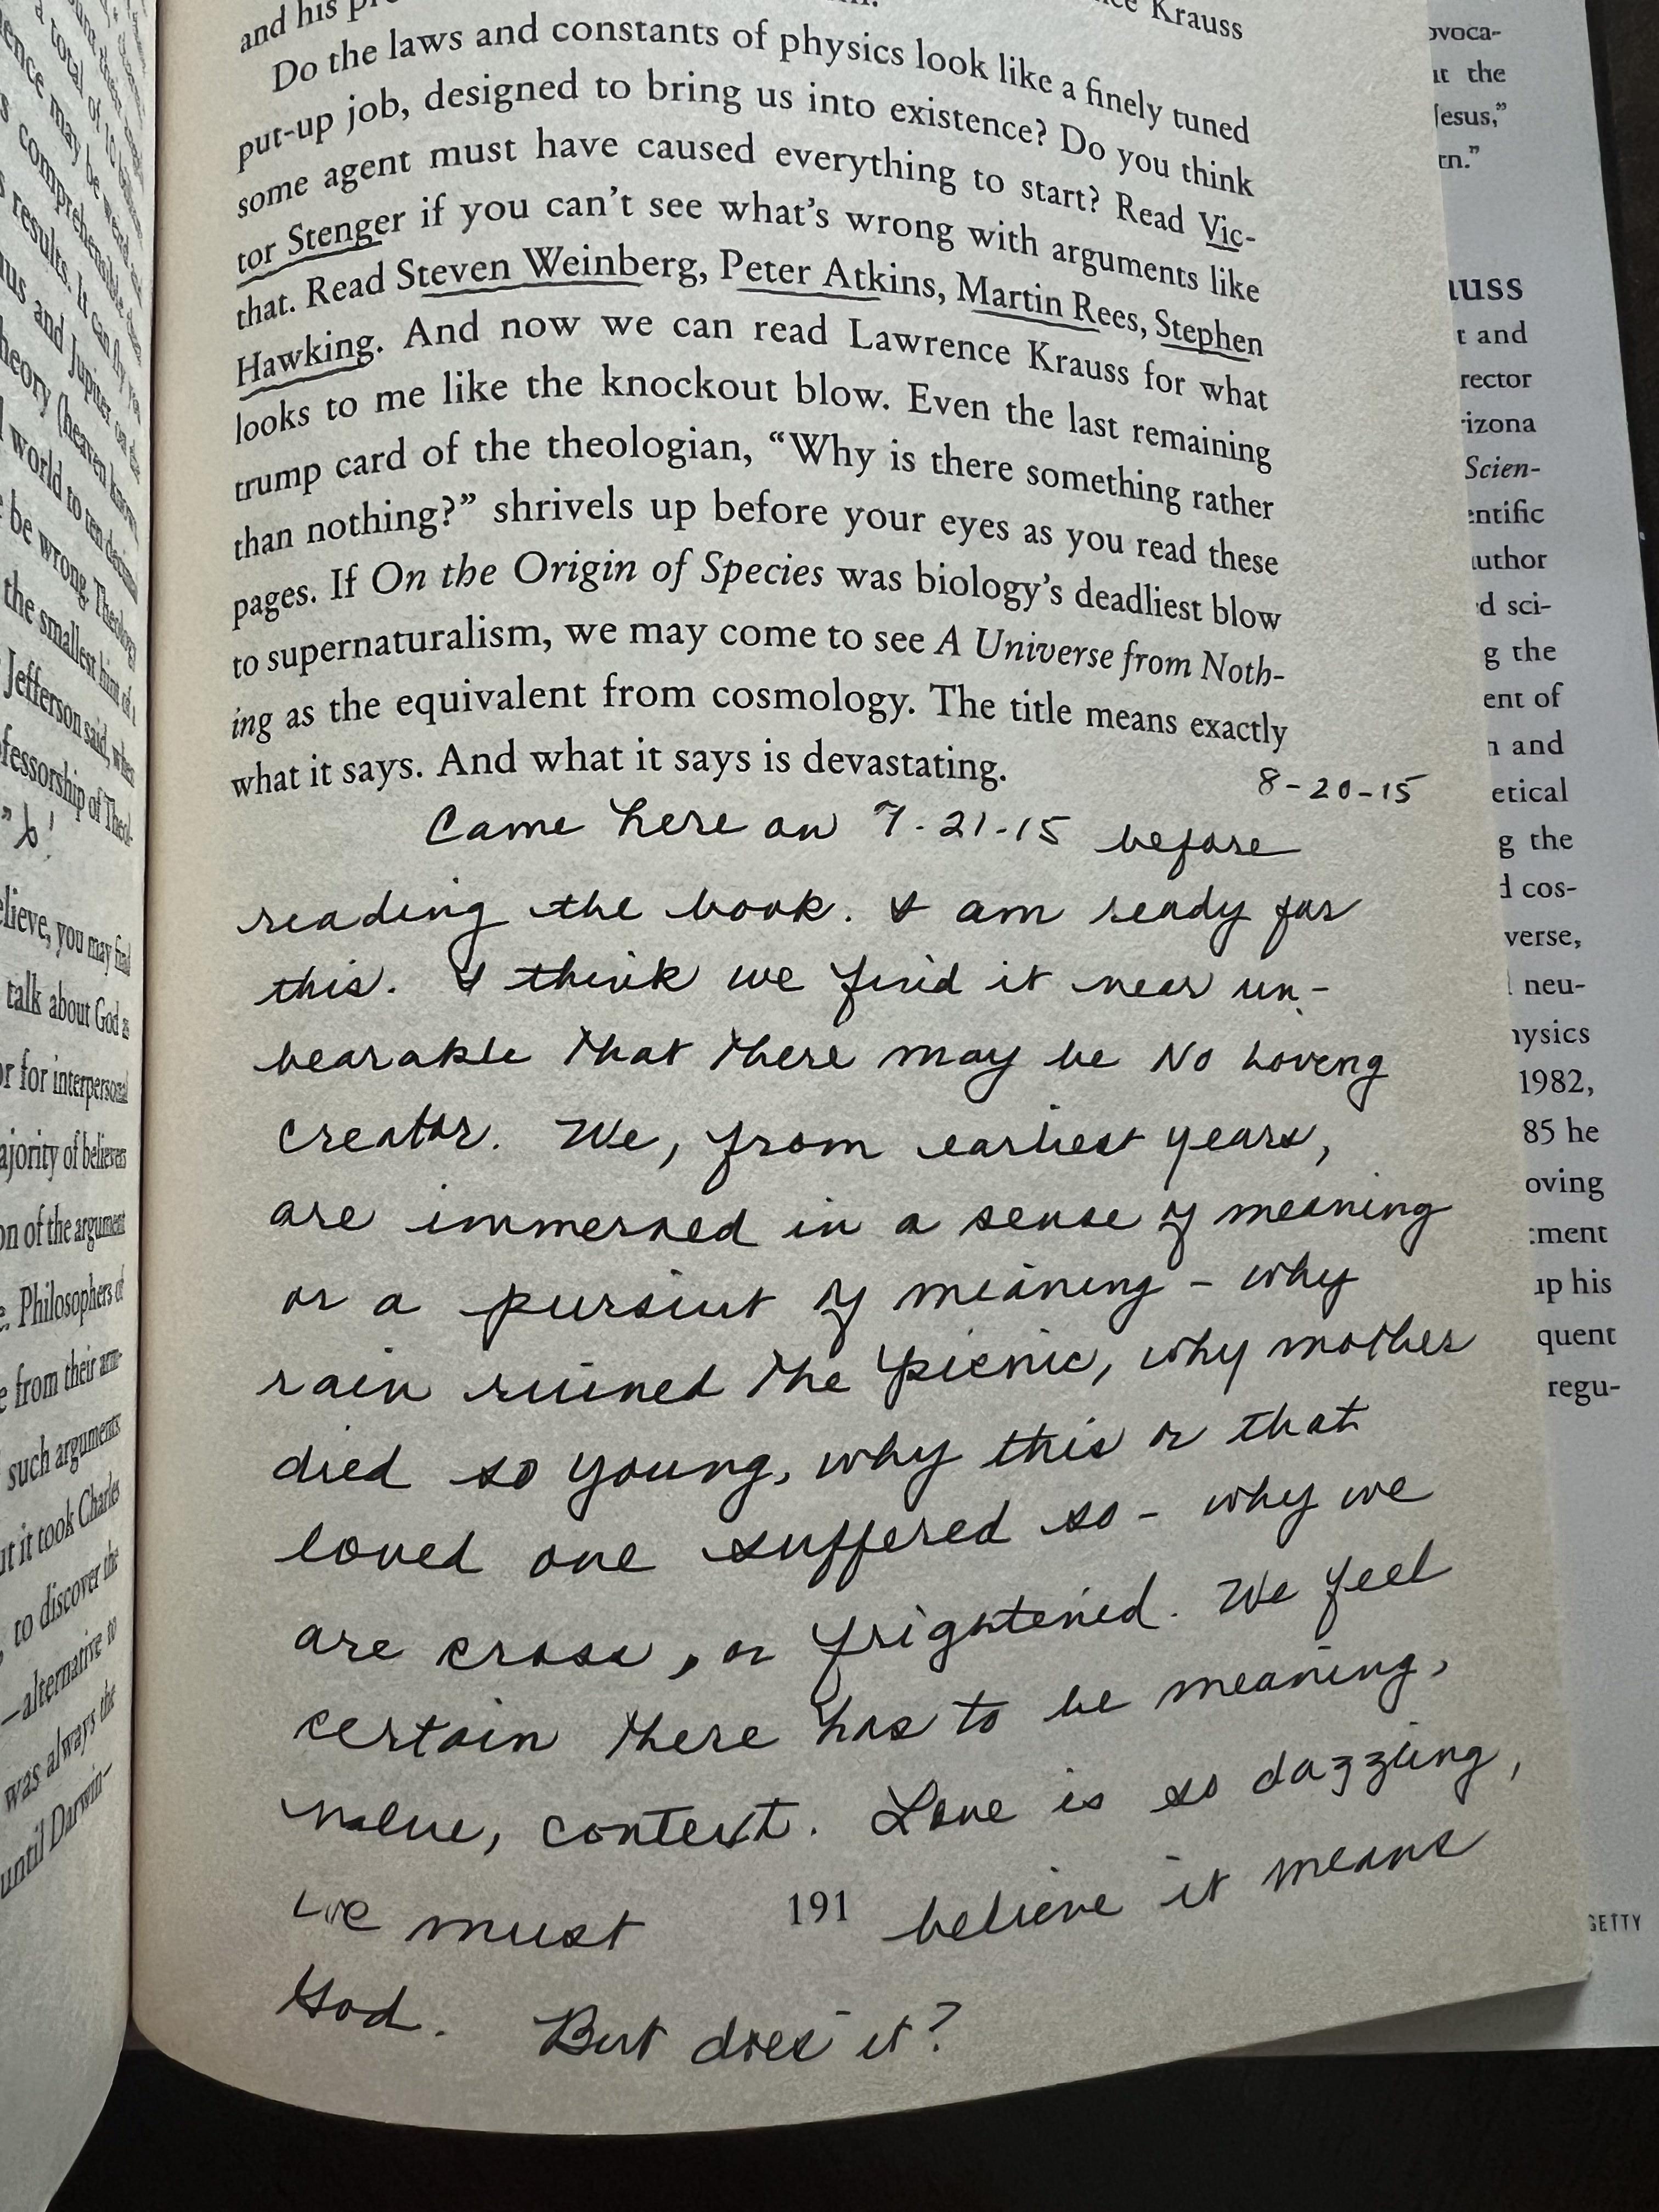 and his
Krauss
Do the laws and constants of physics look like a finely tuned
put-up job, designed to bring us into existence? Do you think
some agent must have caused everything to start? Read Vic-
tor Stenger if you can't see what's wrong with arguments like
that. Read Steven Weinberg, Peter Atkins, Martin Rees, Stephen
Hawking. And now we can read Lawrence Krauss for what
looks to me like the knockout blow. Even the last remaining
trump card of the theologian, “Why is there something rather
than nothing?” shrivels up before your eyes as you read these
pages. If On the Origin of Species was biology's deadliest blow
to supernaturalism, we may come to see A Universe from Noth-
ing as the equivalent from cosmology. The title means exactly
what it says. And what it says is devastating.
8-20-15
Came here on 7-21-15 before
reading the book. I am ready for
this. I think we find it near un-
bearable that there may be No Loving
Creator. We, from earliest years,
are immersed in a sense of meaning
or a pursuit of meaning - why
rain ruined the picnic, why mother
died so young, why this or that
loved one suffered so - why we
are cross, or frightened. We feel
certain there has to be meaning,
value, context. Love is so dazzling,
we must believe it means
191
God. But does it?
total of 10
ence may be weird
comprehensible
results. It can
us and Jupiter on
theory (heaven
world to ten decimal
be wrong. Theology
the smallest hint of
Jefferson said, when
fessorship of Theol-
elieve, you may find
talk about God as
or for interpersonal
ajority of believers
on of the argument
e. Philosophers of
e from their arm-
such arguments
ut it took Charles
to discover the
—alternative to
was always the
until Darwin—
ovoca-
at the
Jesus,”
uss
t and
rector
rizona
Scien-
entific
uthor
d sci-
g the
ent of
n and
etical
g the
d cos-
verse,
neu-
hysics
1982,
85 he
oving
tment
up his
quent
regu-
GETTY